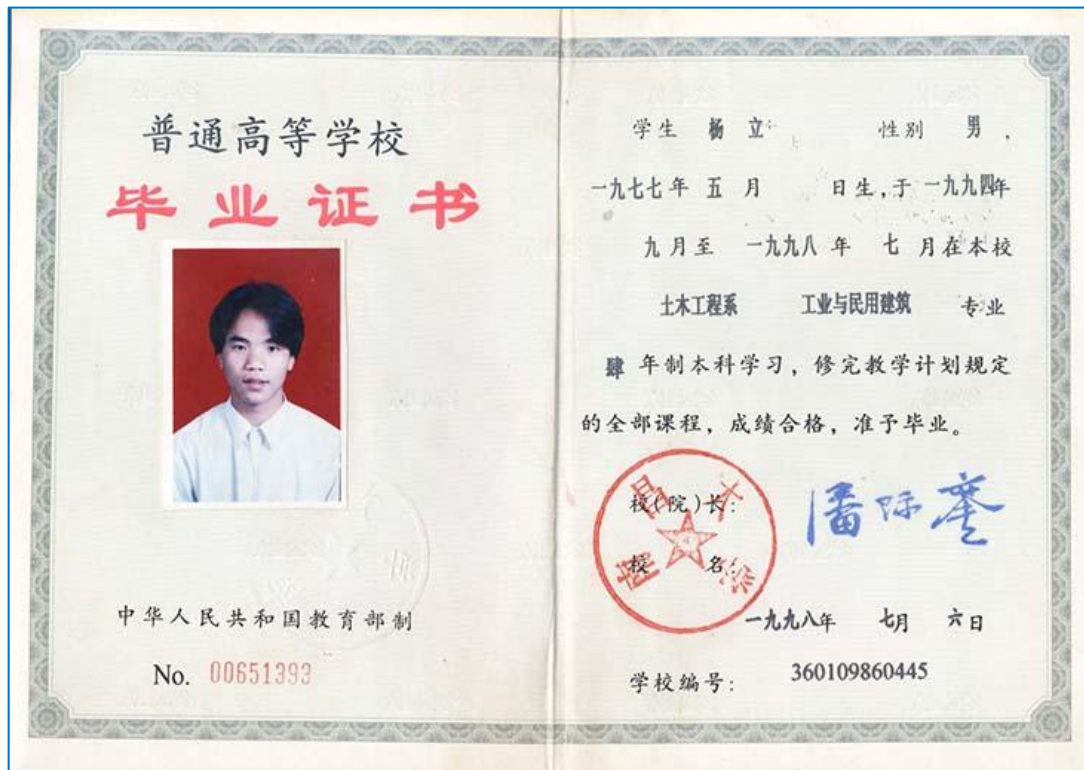 普通高等学校
毕业证书
中华人民共和国教育部制
No. 00651393
学生 杨立 性别 男,
一九七七年 五 月 日生,于 一九九四年
九 月至 一九九八 年 七 月在本校
土木工程系 工业与民用建筑 专业
肆 年制本科学习，修完教学计划规定
的全部课程，成绩合格，准予毕业。
校(院)长: 潘际銮
校 名:
南昌大学
一九九八年 七月 六日
学校编号: 360109860445